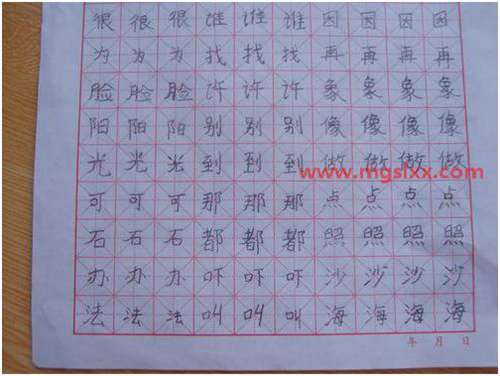 很很很谁谁谁因因因因
为为为找找找再再再再
脸脸脸许许许象象象象
阳阳阳别别别像像像像
光光光到到到做做做做
www.mgslxx.com
可可可那那那点点点点
石石石都都都照照照照
办办办吓吓吓沙沙沙沙
法法法叫叫叫海海海海
年 月 日